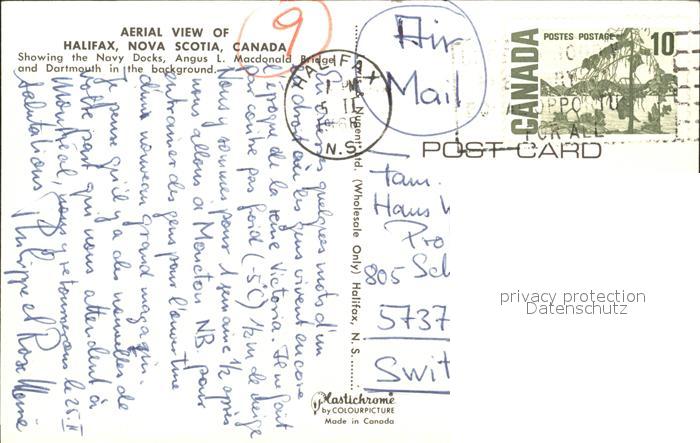 AERIAL VIEW OF
HALIFAX, NOVA SCOTIA, CANADA
Showing the Navy Docks, Angus L. Macdonald Bridge
and Dartmouth in the background.
9
HALIFAX
PM
5 II
1968
N.S.
Air
Mail
CANADA
POSTES POSTAGE
10
OPPORTU
FOR ALL
POST CARD
quelques mots d'un
endroit où les gens vivent encore
l'époque de la reine Victoria. Il ne fait
par contre pas froid (-5°C) 1/2 m de neige
Nous y sommes pour 1 semaine 1/2 après
nous allons à Moncton NB. pour
entrainer des gens pour l'ouverture
d'un nouveau grand magasin.
Je pense qu'il y a des nouvelles de
votre part qui nous attendent à
Montréal, nous y retournerons le 25.II
Salutations Philippe et Rose Marie
Nugent Ltd. (Wholesale Only) Halifax, N. S.
Fam.
Hans
Pro
805 Sch
5737
Swit
privacy protection
Datenschutz
Plastichrome
by COLOURPICTURE
Made in Canada